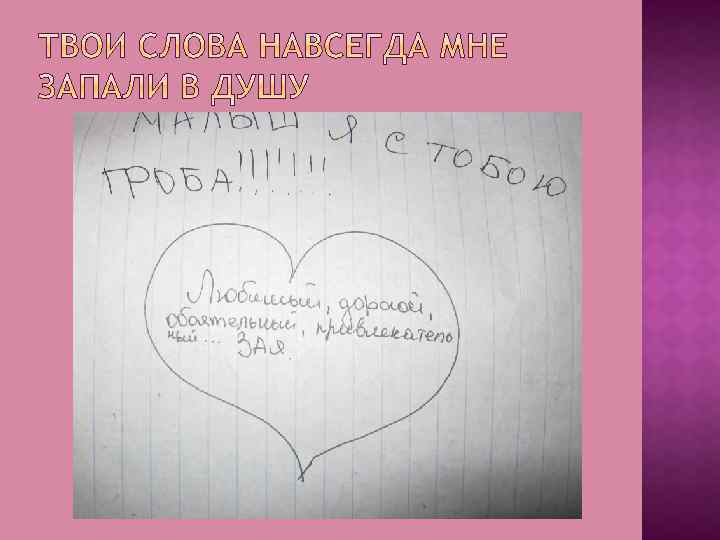 ТВОИ СЛОВА НАВСЕГДА МНЕ
ЗАПАЛИ В ДУШУ
МАЛЫШ Я С ТОБОЮ
ГРОБА!!!!!!!
Любимый, дорогой,
обаятельный, привлекатель
ный... ЗАЯ.